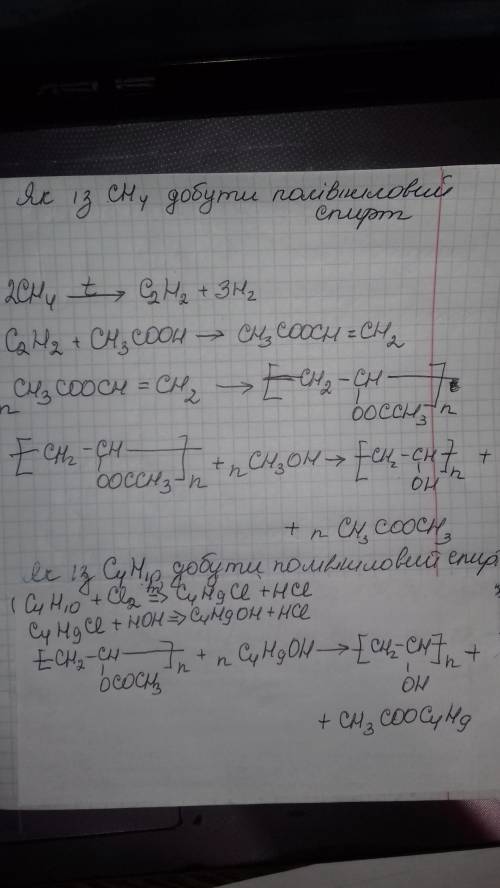 Як із CH4 добути полівініловий
спирт
2CH4 —t→ C2H2 + 3H2
C2H2 + CH3COOH → CH3COOCH = CH2
n CH3COOCH = CH2 → [–CH2 – CH–]n
OOCCH3
[–CH2 – CH–]n + n CH3OH → [CH2 – CH]n +
OOCCH3
OH
+ n CH3COOCH3
Як із C4H10 добути полівініловий спирт
C4H10 + Cl2 ⇒ C4H9Cl + HCl
C4H9Cl + HOH ⇒ C4H9OH + HCl
[–CH2 – CH–]n + n C4H9OH → [CH2 – CH]n +
OCOCH3
OH
+ CH3COOC4H9